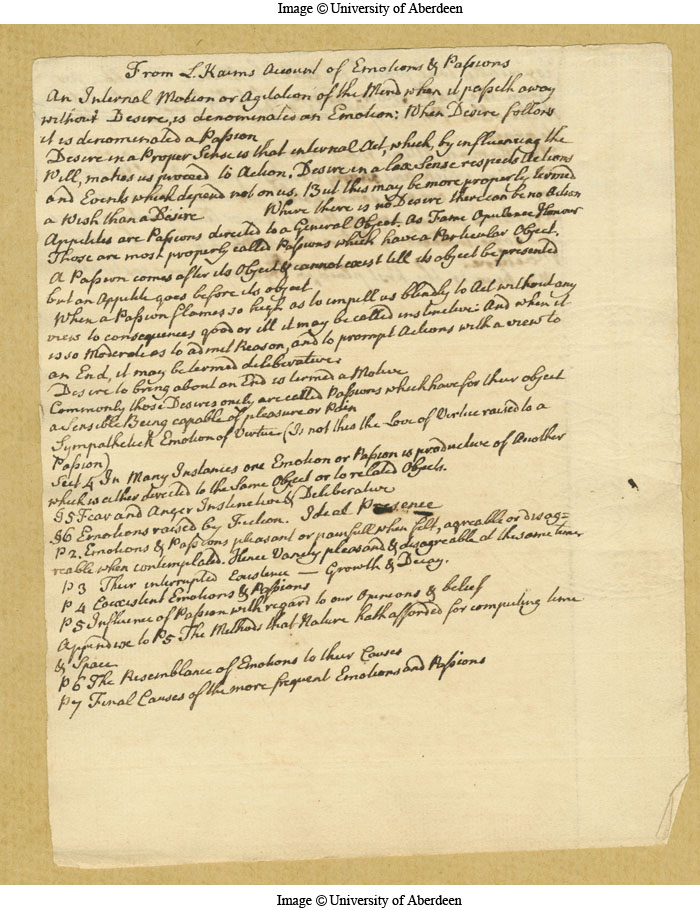 Image © University of Aberdeen
From L. Kaims Account of Emotions & Passions
An Internal Motion or Agitation of the Mind when it passeth away
without Desire, is denominated an Emotion: When Desire follows
it is denominated a Passion
Desire in a Proper Sense is that internal Act, which, by influencing the
Will, makes us proceed to Action. Desire in a lax Sense respects Actions
and Events which depend not on us. But this may be more properly termed
a Wish than a Desire Where there is no Desire there can be no Action
Appetites are Passions directed to a General Object. As Fame Opulence Honour
Those are most properly called Passions which have a Particular Object.
A Passion comes after its Object & cannot exist till its object be presented
but an Appetite goes before its object
When a Passion flames so high as to impell us blindly to Act without any
view to consequences good or ill it may be called instinctive: And when it
is so Moderate as to admit Reason, and to prompt Actions with a view to
an End, it may be termed deliberative
Desire to bring about an End is termed a Motive
Commonly those Desires only, are called Passions which have for their object
a Sensible Being capable of pleasure or Pain
Sympathetick Emotion of Virtue (Is not this the Love of Virtue raised to a
Passion)
Sect 4 In Many Instances one Emotion or Passion is productive of Another
which is either directed to the Same Object or to related Objects.
§5 Fear and Anger Instinctive & Deliberative
§6 Emotions raised by Fiction. Ideal Presence
p 2. Emotions & Passions pleasant or painfull when felt, agreable or disag=
reable when contemplated. Hence Vanity pleasant & disagreable at the same time
p 3 Their interrupted Existence — Growth & Decay.
p 4 Coexistent Emotions & Passions
p 5 Influence of Passion with regard to our Opinions & belief
Appendix to p 5 The Methods that Nature hath afforded for computing time
& Space
p 6 The Resemblance of Emotions to their Causes
p 7 Final Causes of the more frequent Emotions and Passions
Image © University of Aberdeen